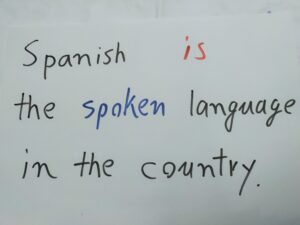 Spanish is
the spoken language
in the country.